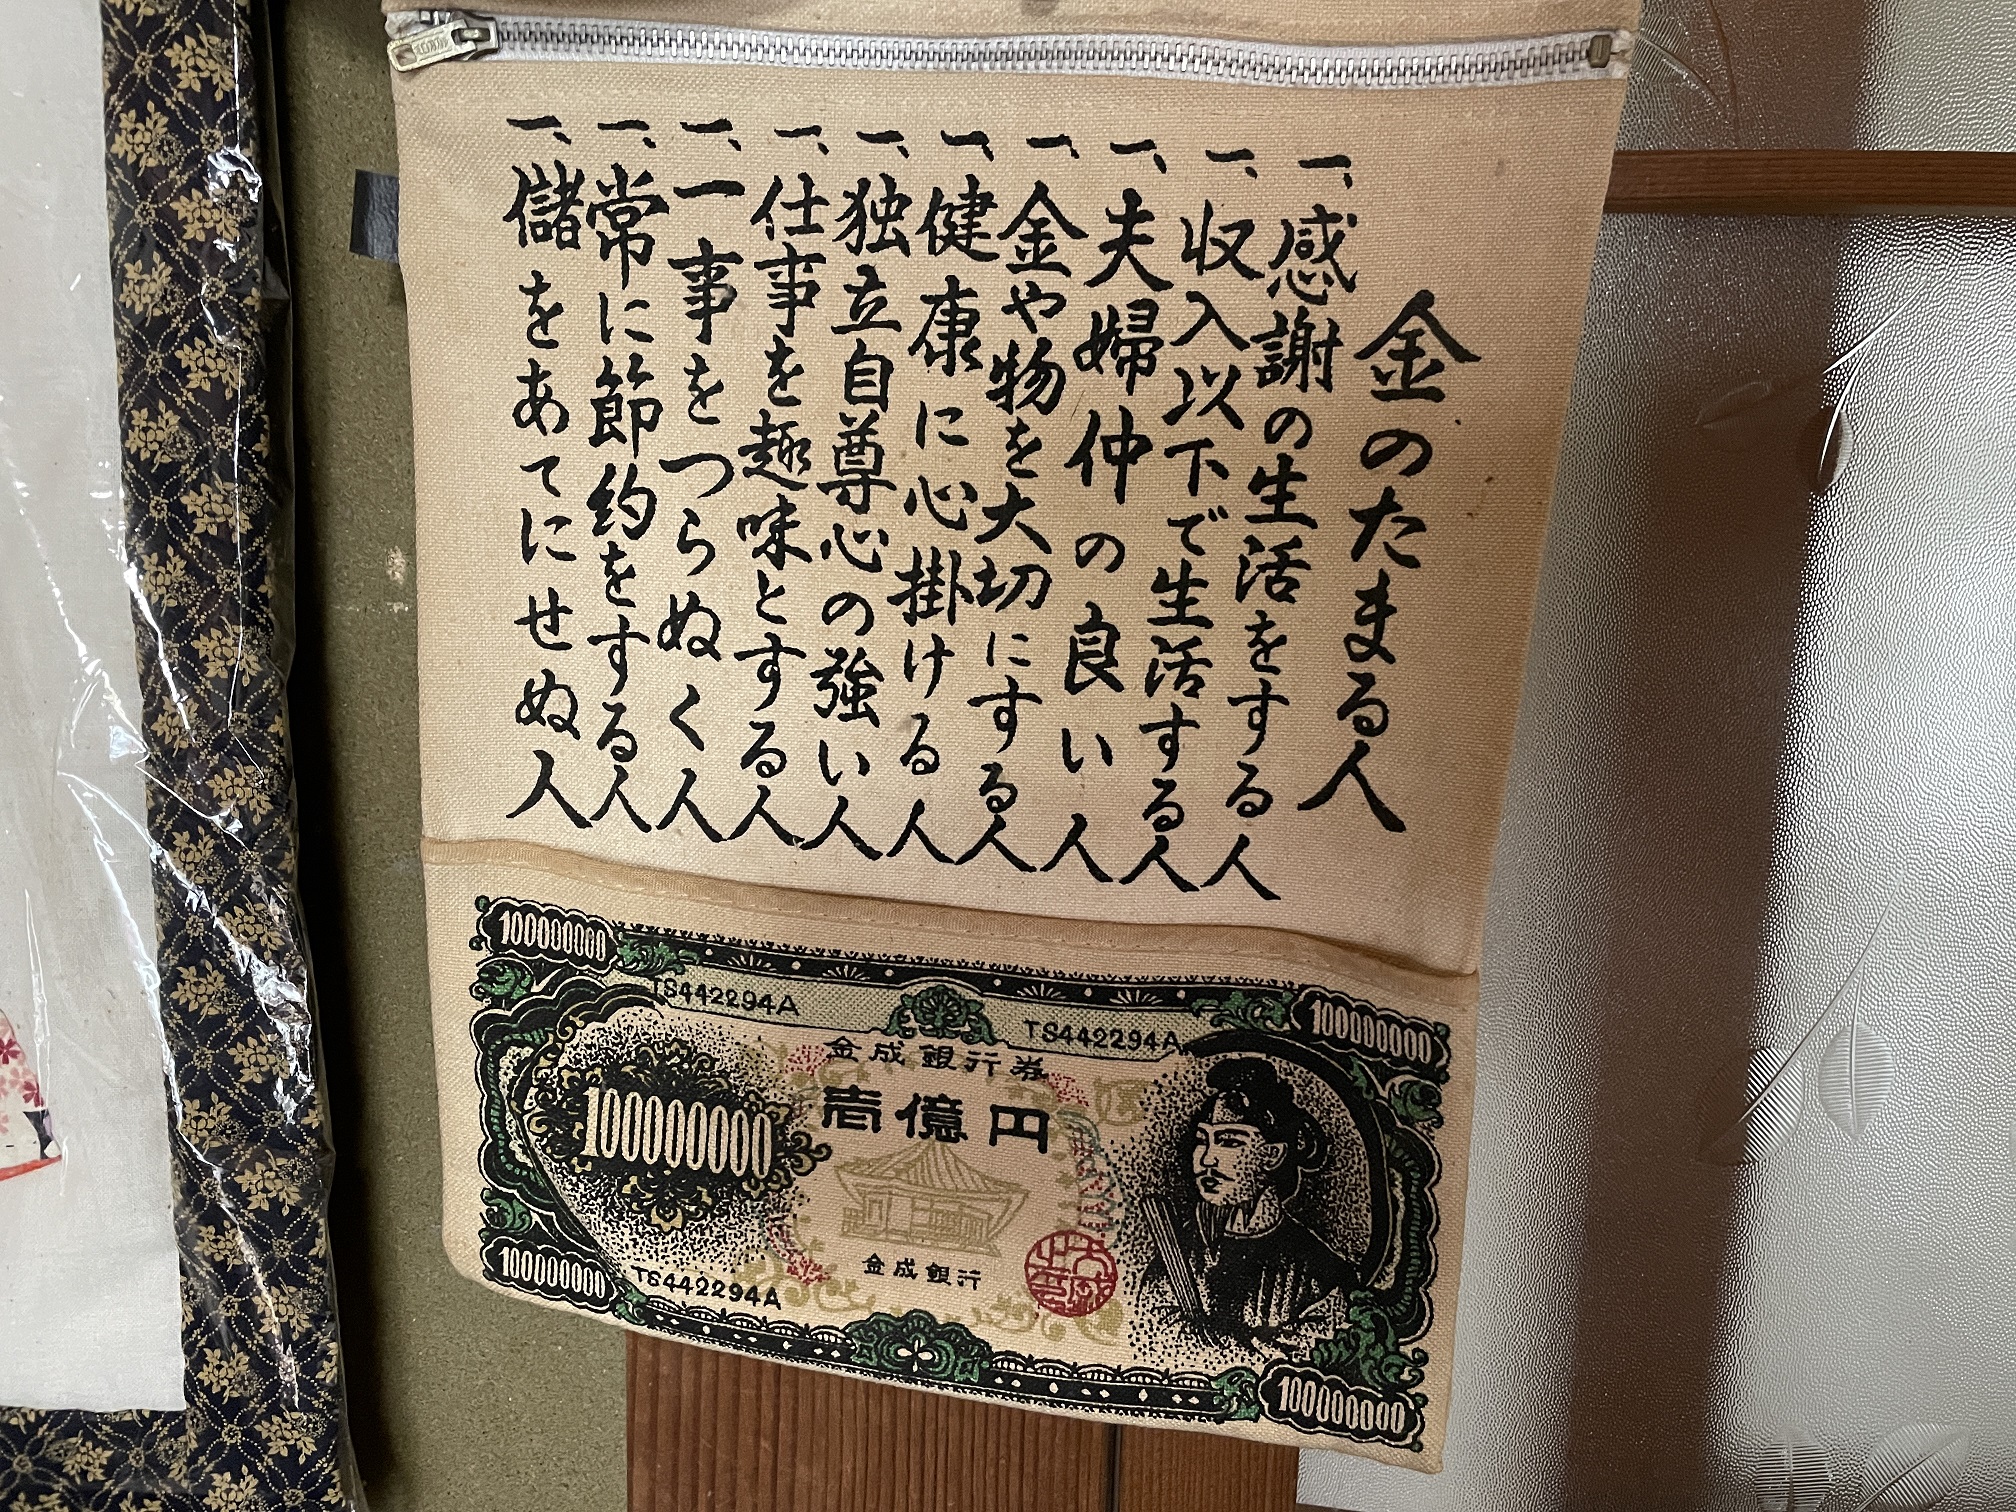 金のたまる人
一、感謝の生活をする人
一、収入以下で生活する人
一、夫婦仲の良い人
一、金や物を大切にする人
一、健康に心掛ける人
一、独立自尊心の強い人
一、仕事を趣味とする人
一、一事をつらぬく人
一、常に節約をする人
一、儲をあてにせぬ人
100000000
100000000
TS442294A
TS442294A
金成銀行券
壱億円
100000000
金成銀行
100000000
TS442294A
100000000